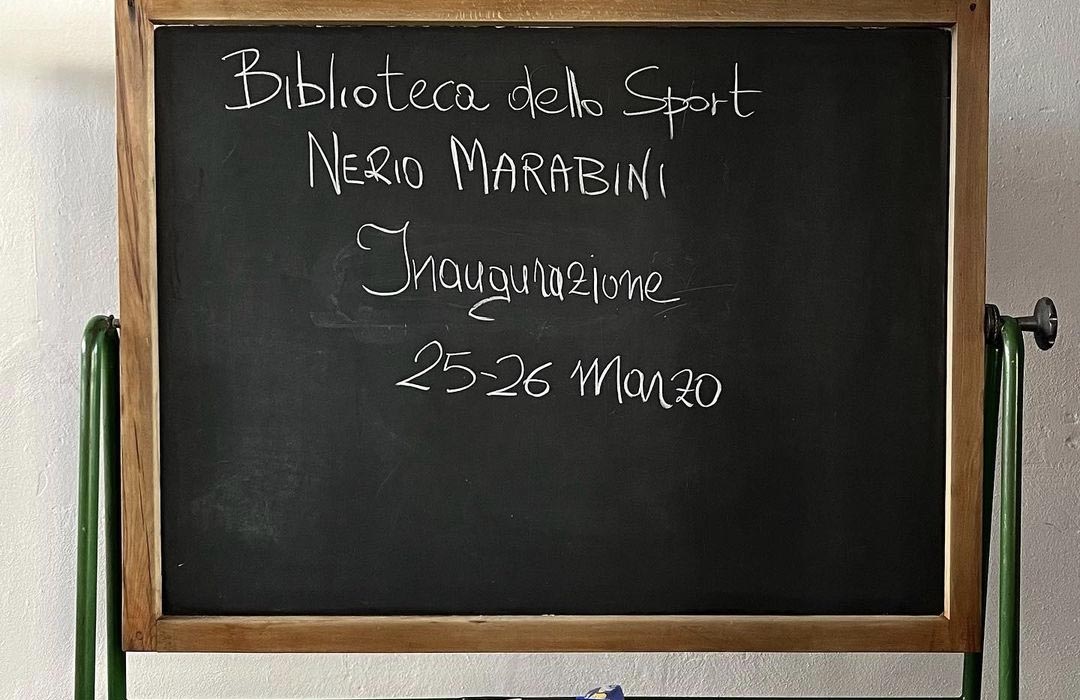 Biblioteca dello Sport
NERIO MARABINI
Inaugurazione
25-26 Marzo